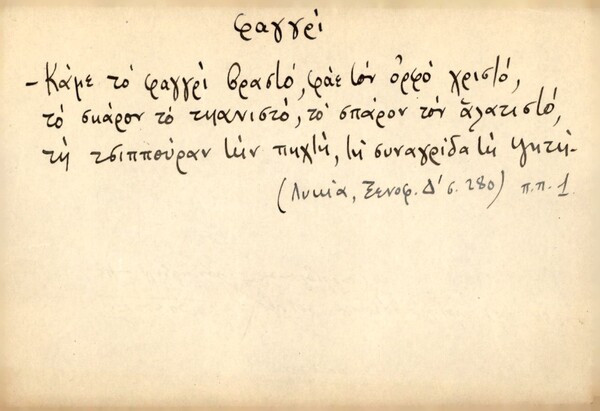 φαγγρί
- Κάμε τό φαγγρί βραστό, φάε τόν ὀρφό χριστό,
τό σκάρον τό τηανιστό, τό σπάρον τόν ἁλατιστό,
τή τσιππούραν τήν πηχτή, τή συναγρίδα τή ψητή-
(Λυκία, Ξενοφ. Δ' σ. 280) π.π. 1